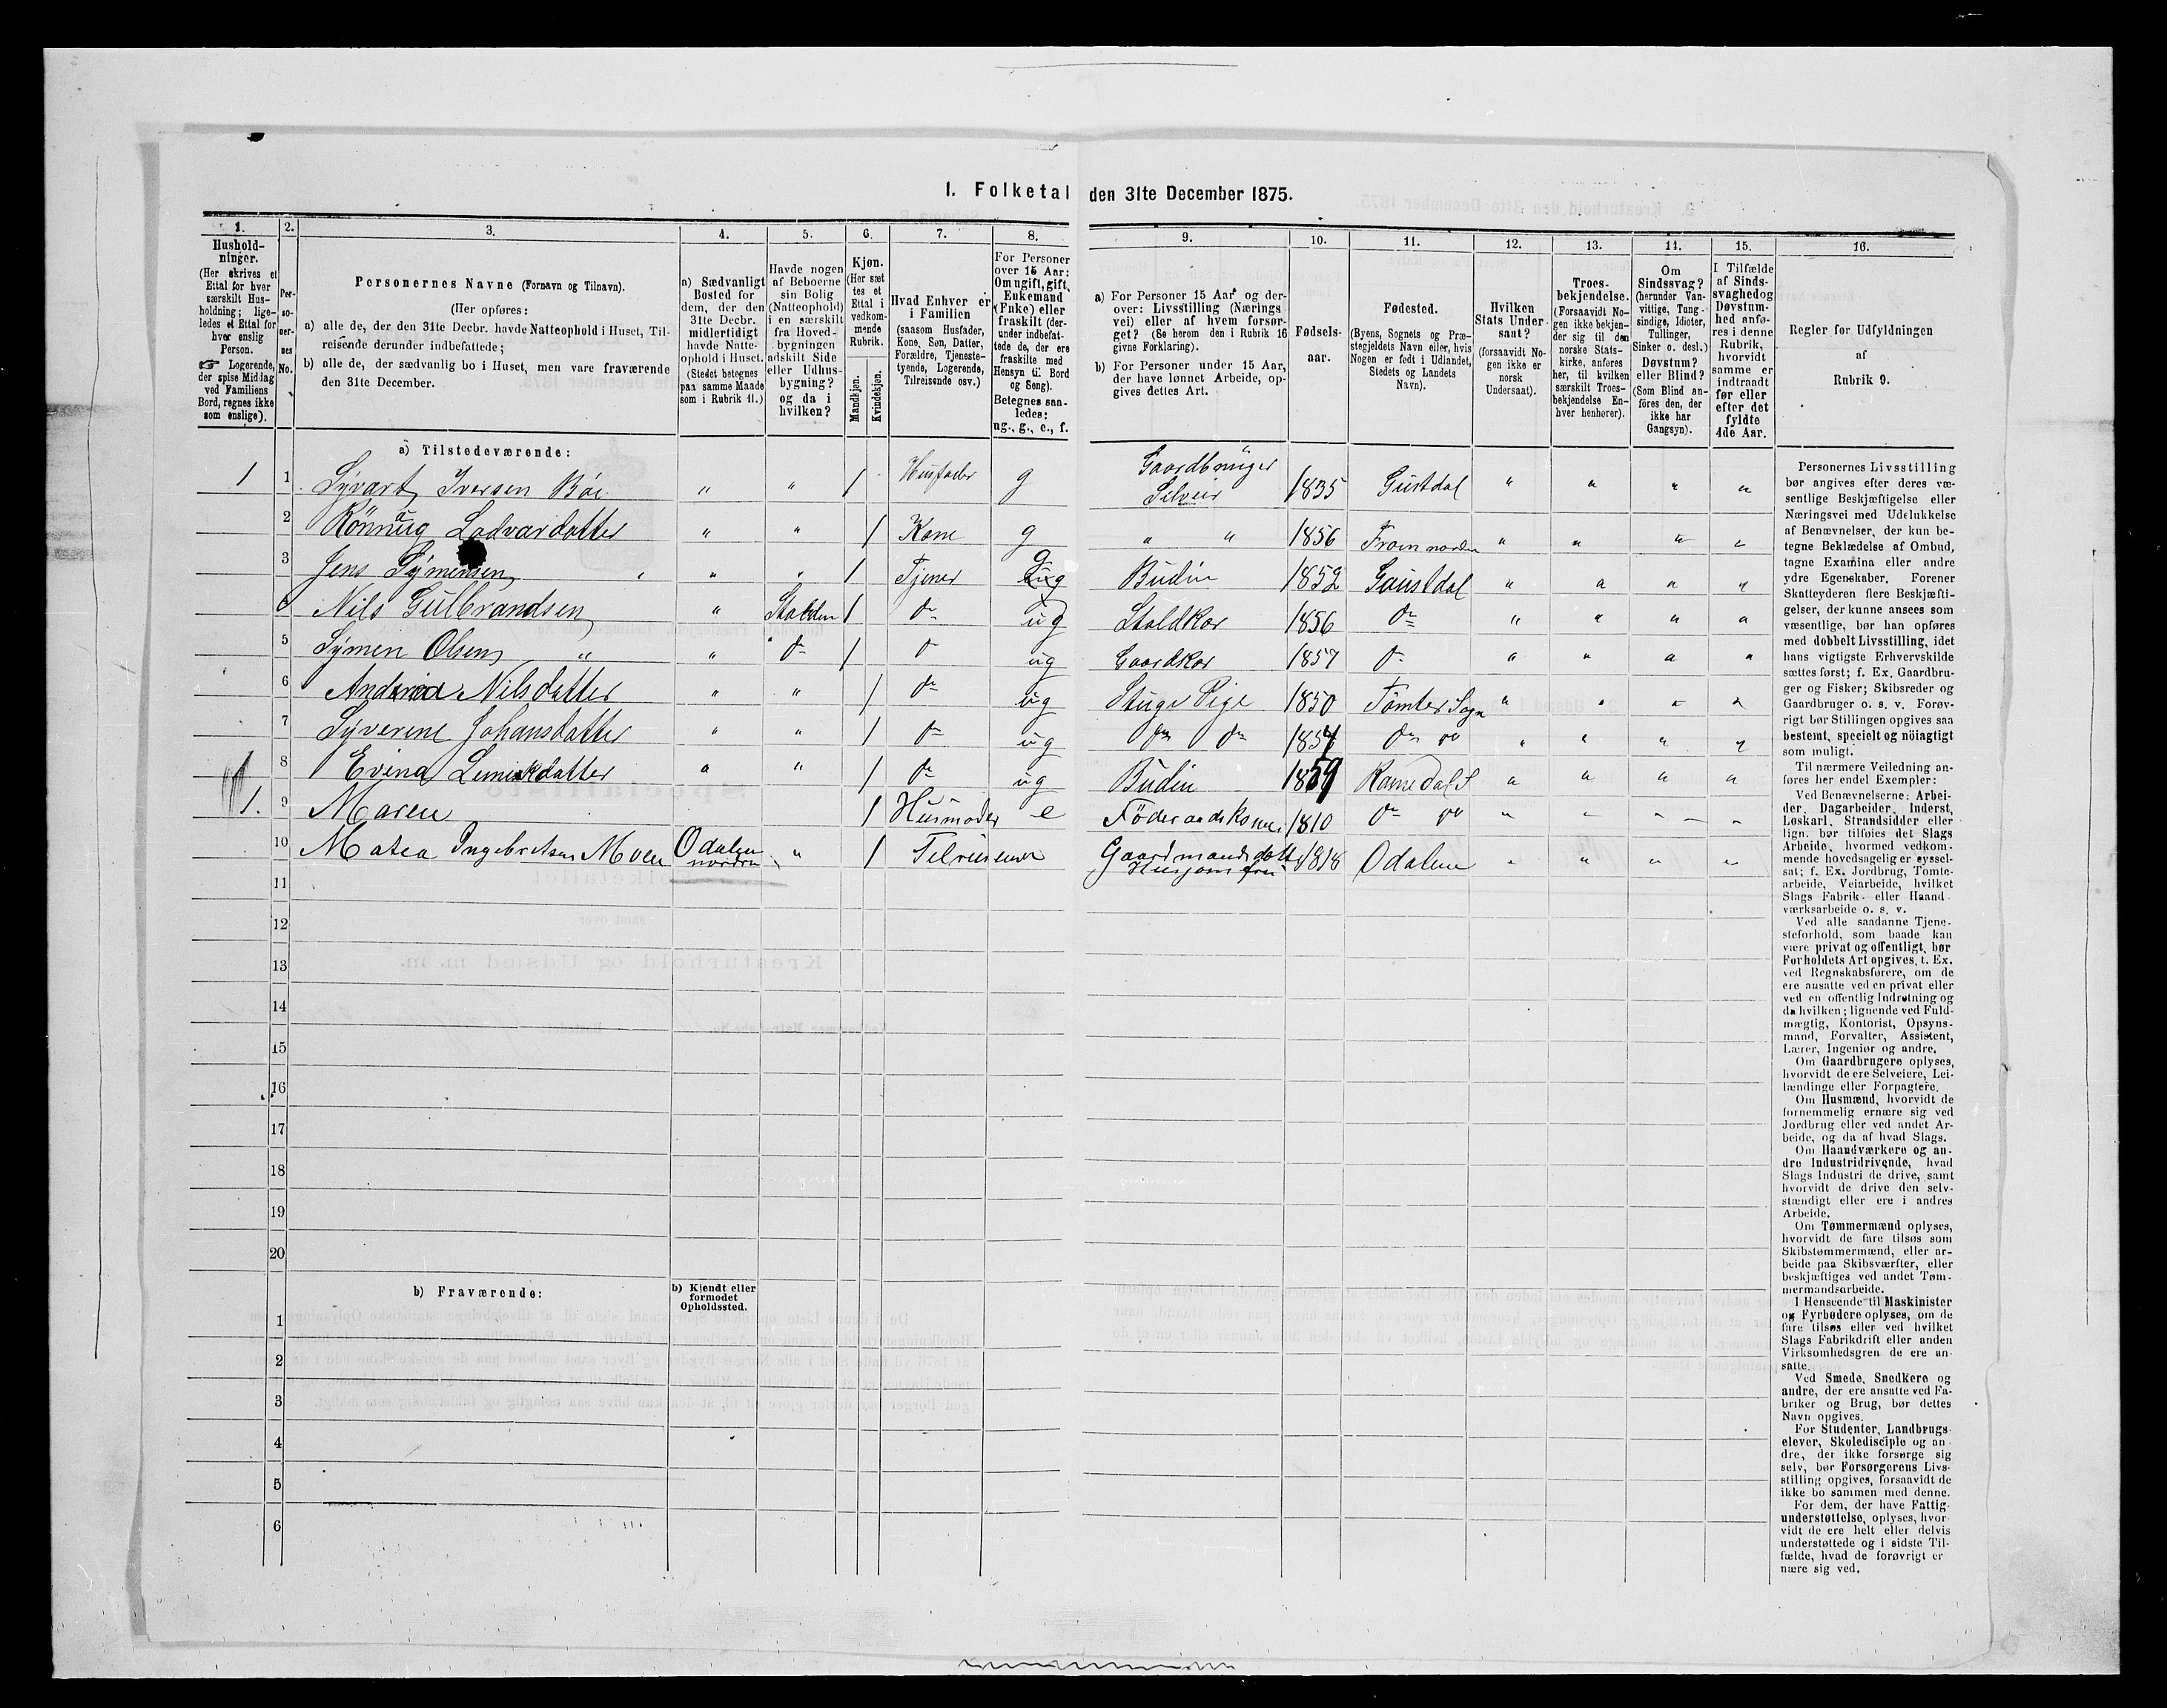 1. Folketal den 31te December 1875.
1.
Hushold-
ninger.
(Her skrives et
Ettal for hver
særskilt Hus-
holdning; lige-
ledes et Ettal for
hver enslig
Person.
☞ Logerende,
der spise Middag
ved Familiens
Bord, regnes ikke
som enslige).
2.
Per-
so-
ner-
nes
No.
3.
Personernes Navne (Fornavn og Tilnavn).
(Her opføres:
a) alle de, der den 31te Decbr. havde Natteophold i Huset, Til-
reisende derunder indbefattede;
b) alle de, der sædvanlig bo i Huset, men vare fraværende
den 31te December.
4.
a) Sædvanligt
Bosted for
dem, der den
31te Decbr.
midlertidigt
havde Natte-
ophold i Huset.
(Stedet betegnes
paa samme Maade
som i Rubrik 11.)
5.
Havde nogen
af Beboerne
sin Bolig
(Natteophold)
i en særskilt
fra Hoved-
bygningen
adskilt Side
eller Udhus-
bygning?
og da i
hvilken?
6.
Kjøn.
(Her sæt
tes et
Ettal i
vedkom-
mende
Rubrik.
Mandkjøn.
Kvindekjøn.
7.
Hvad Enhver er
i Familien
(saasom Husfader,
Kone, Søn, Datter,
Forældre, Tjeneste-
tyende, Logerende,
Tilreisende osv.)
8.
For Personer
over 15 Aar:
Om ugift, gift,
Enkemand
(Enke) eller
fraskilt (der-
under indbefat-
tede de, der ere
fraskilte med
Hensyn til Bord
og Seng).
Betegnes saa-
ledes:
ug., g., e., f.
9.
a) For Personer 15 Aar og der-
over: Livsstilling (Nærings
vei) eller af hvem forsør-
get? (Se herom den i Rubrik 16
givne Forklaring).
b) For Personer under 15 Aar,
der have lønnet Arbeide, op-
gives dettes Art.
10.
Fødsels-
aar.
11.
Fødested.
(Byens, Sognets og Præ-
stegjeldets Navn eller, hvis
Nogen er født i Udlandet,
Stedets og Landets
Navn).
12.
Hvilken
Stats Under-
saat?
(forsaavidt No-
gen ikke er
norsk
Undersaat).
13.
Troes-
bekjendelse.
(Forsaavidt No-
gen ikke bekjen-
der sig til den
norske Stats-
kirke, anføres
her, til hvilken
særskilt Troes-
bekjendelse En-
hver henhører).
14.
Om
Sindssvag?
(herunder Van-
vittige, Tung-
sindige, Idioter,
Tullinger,
Sinker o. desl.)
Døvstum?
eller Blind?
(Som Blind an-
føres den, der
ikke har
Gangsyn).
15.
I Tilfælde
af Sinds-
svaghed og
Døvstum-
hed anfø-
res i denne
Rubrik,
hvorvidt
samme er
indtraadt
før eller
efter det
fyldte
4de Aar.
16.
Regler for Udfyldningen
af
Rubrik 9.
a) Tilstedeværende:
1 1 Syvart Iversen Böe " " 1 Husfader g Gaardbruger Selveir 1835 Gustdal " " " "
2 Rönnaug Lodvardatter " " 1 Kone g " " 1856 Froen nordre " " " "
3 Jens Symensen " " 1 Tjener g Budin 1852 Gaustdal " " " "
Nils Gulbrandsen " Stalden 1 do ug Staldkar 1856 do " " " "
5 Symen Olsen " " do 1 do ug Gaardskar 1857 do " " " "
6 Nilsdatter " " 1 do ug Stuge Pige 1850 Tömter Sogn " " " "
7 Syverine Johansdatter " " 1 do ug do do 1857 do do " " " "
8 Evina " " 1 do ug Budin 1859 Romedal S " " " "
1. 9 Maren 1 Husmoder e Föderaadskone 1810 do do " " " "
10 Matea Ingebretsen Moen Odalen nordre " 1 Tilreisener Gaardmandsdatter 1818 Odalen " " " "
11
12
13
14
15
16
17
18
19
20
b) Fraværende:
b) Kjendt eller
formodet
Opholdssted.
1
2
3
4
5
6
Personernes Livsstilling
bør angives efter deres væ-
sentlige Beskjæftigelse eller
Næringsvei med Udelukkelse
af Benævnelser, der kun be-
tegne Beklædelse af Ombud,
tagne Examina eller andre
ydre Egenskaber. Forener
Skatteyderen flere Beskjæfti-
gelser, der kunne ansees som
væsentlige, bør han opføres
med dobbelt Livsstilling, idet
hans vigtigste Erhvervskilde
sættes først; f. Ex. Gaardbru-
ger og Fisker; Skibsreder og
Gaardbruger o. s. v. Forøv-
rigt bør Stillingen opgives saa
bestemt, specielt og nöiagtigt
som muligt.
Til nærmere Veiledning an-
føres her endel Exempler:
Ved Benævnelserne: Arbei-
der, Dagarbeider, Inderst,
Løskarl, Strandsidder eller
lign. bør tilføies det Slags
Arbeide, hvormed vedkom-
mende hovedsagelig er syssel-
sat; f. Ex. Jordbrug, Tomte-
arbeide, Veiarbeide, hvilket
Slags Fabrik- eller Haand-
værksarbeide o. s. v.
Ved alle saadanne Tjene-
steforhold, som baade kan
være privat og offentligt, bør
Forholdets Art opgives, t. Ex.
ved Regnskabsførere, om de
ere ansatte ved en privat eller
ved en offentlig Indretning og
da hvilken; lignende ved Fuld-
mægtig, Kontorist, Opsyns-
mand, Forvalter, Assistent,
Lærer, Ingeniør og andre.
Om Gaardbrugere oplyses,
hvorvidt de ere Selveiere, Lei-
lændinge eller Forpagtere.
Om Husmænd, hvorvidt de
fornemmelig ernære sig ved
Jordbrug eller ved andet Ar-
beide, og da af hvad Slags.
Om Haandværkere og an-
dre Industridrivende, hvad
Slags Industri de drive, samt
hvorvidt de drive den selv-
stændigt eller ere i andres
Arbeide.
Om Tømmermænd oplyses,
hvorvidt de fare tilsøs som
Skibstømmermænd, eller ar-
beide paa Skibsværfter, eller
beskjæftiges ved andet Tøm-
mermandsarbeide.
I Henseende til Maskinister
og Fyrbødere oplyses, om de
fare tilsøs eller ved hvilket
Slags Fabrikdrift eller anden
Virksomhedsgren de ere an-
satte.
Ved Smede, Snedkere og
andre, der ere ansatte ved Fa-
briker og Brug, bør dettes
Navn opgives.
For Studenter, Landbrugs-
elever, Skoledisciple og an-
dre, der ikke forsørge sig
selv, bør Forsørgerens Livs-
stilling opgives, forsaavidt de
ikke bo sammen med denne.
For dem, der have Fattig-
understøttelse, oplyses, hvor-
vidt de ere helt eller delvis
understøttede og i sidste Til-
fælde, hvad de forøvrigt er-
nære sig ved.